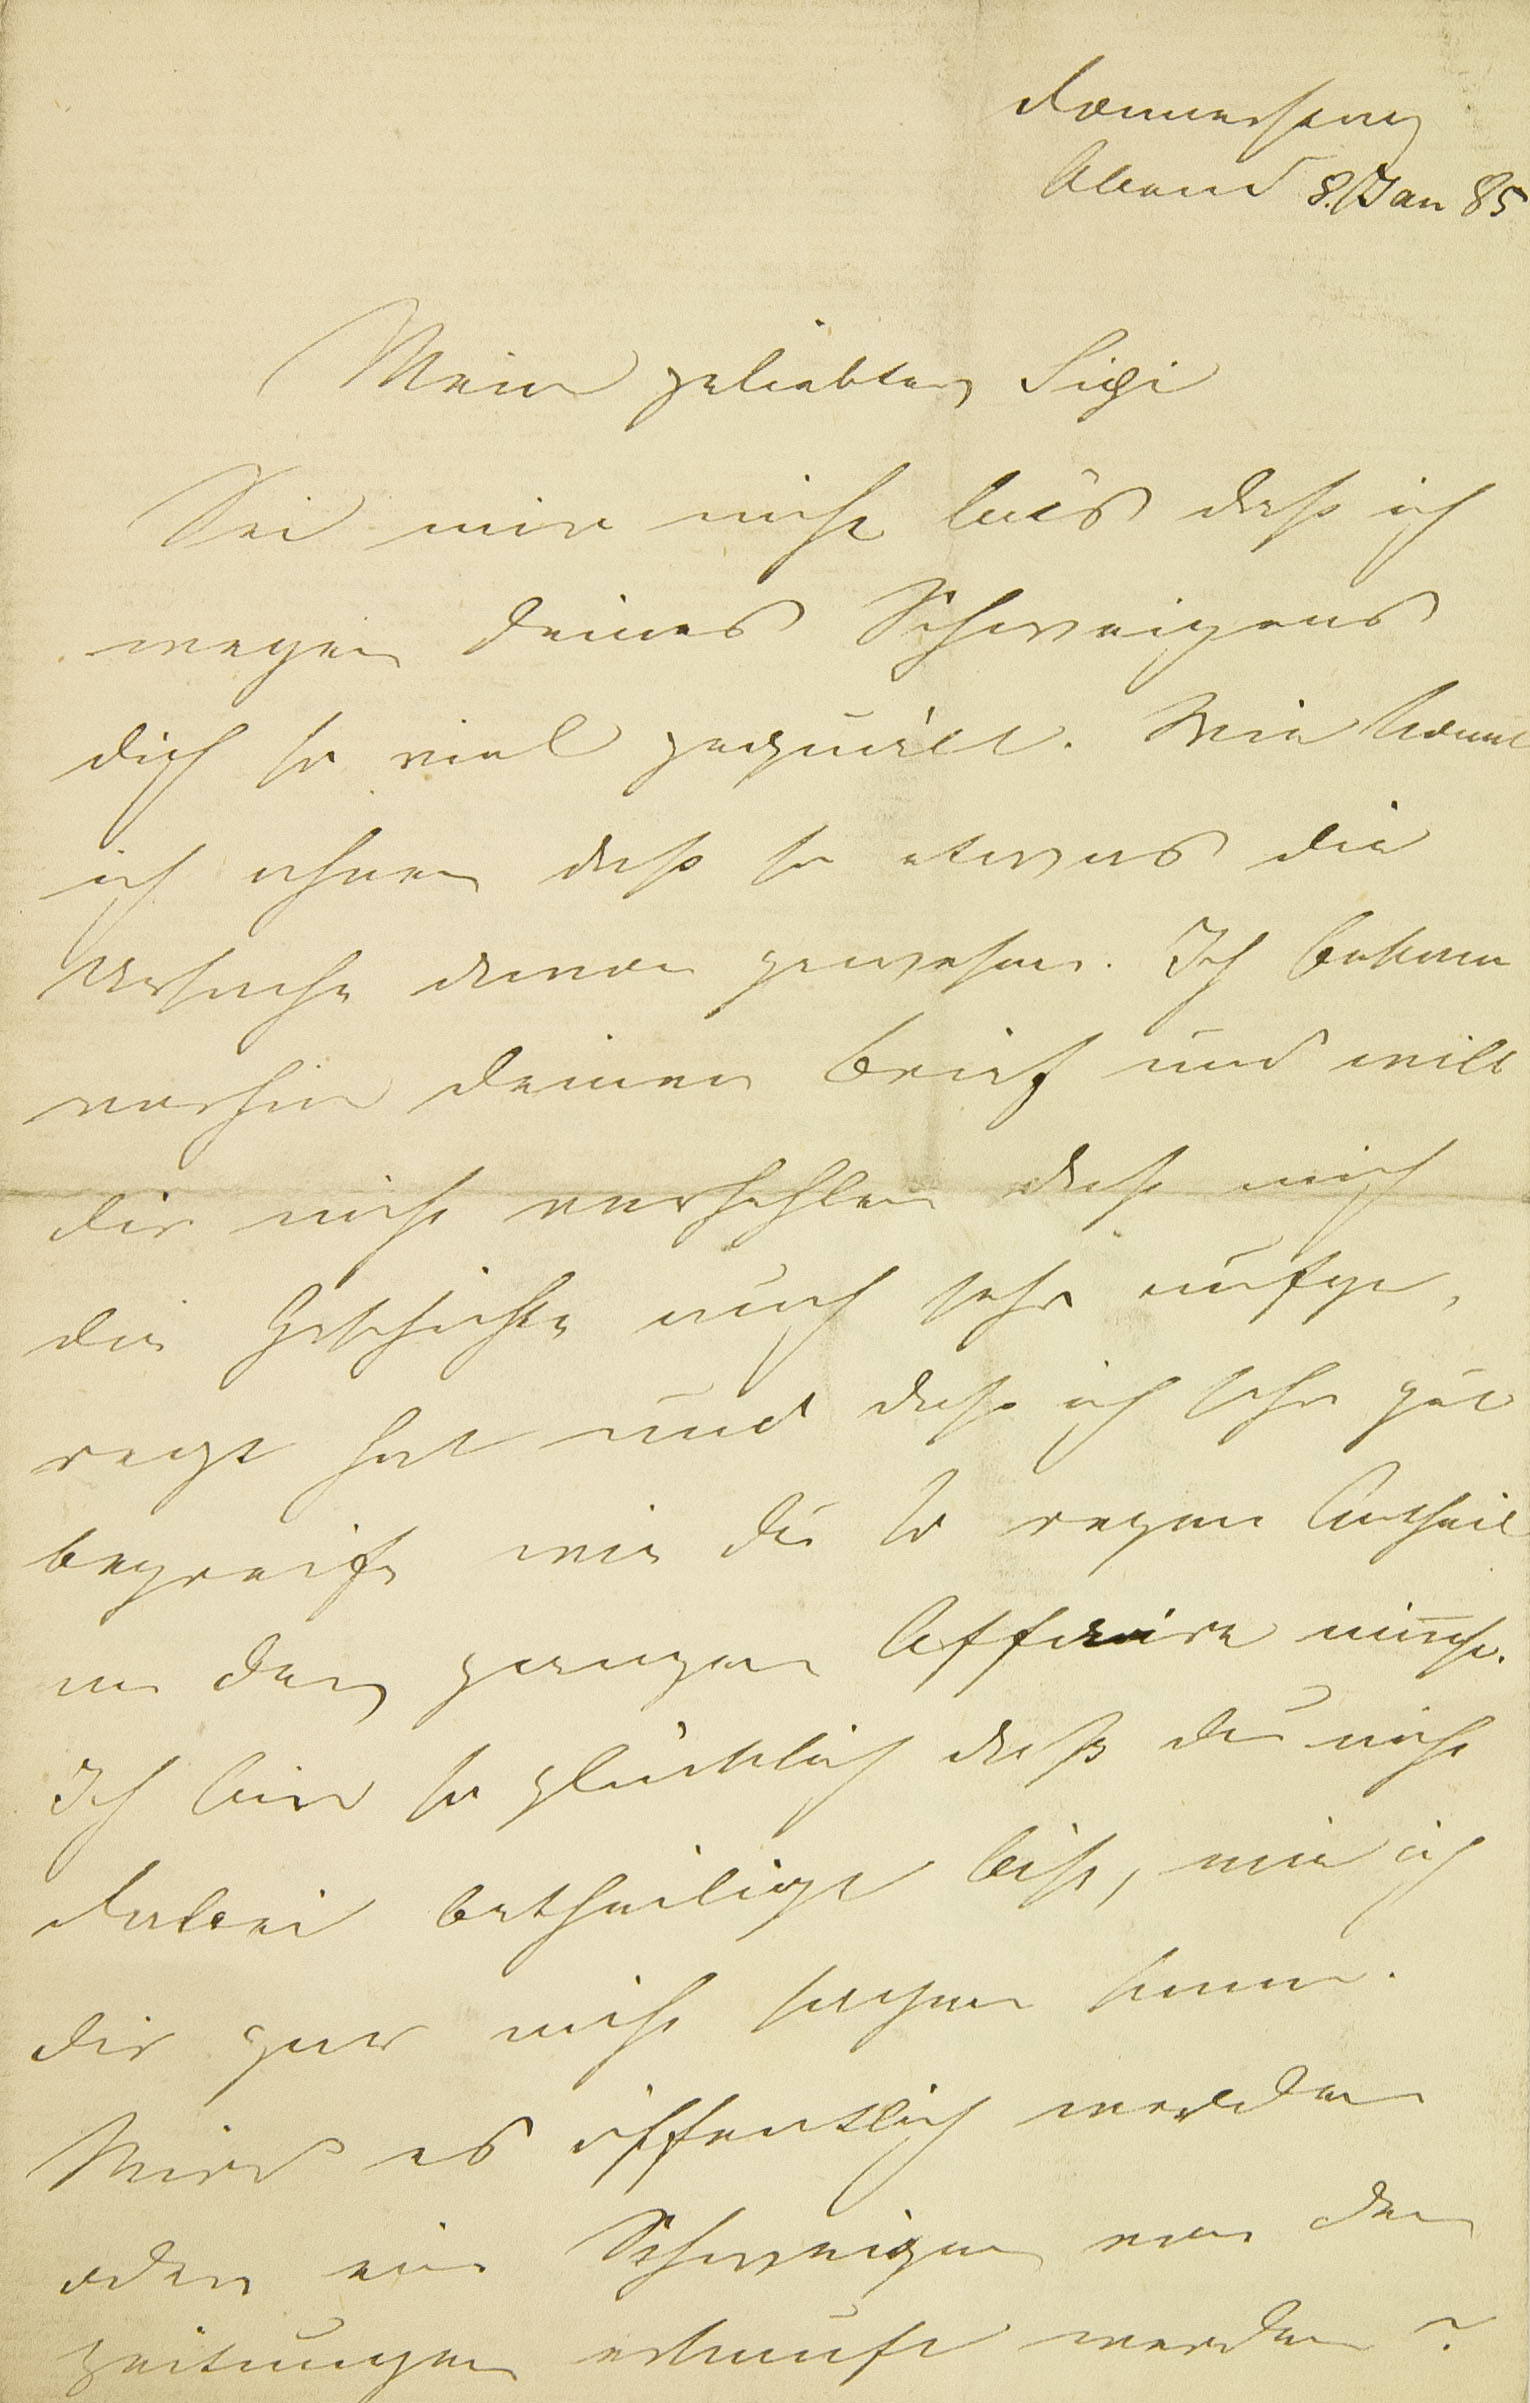 Donnerstag
Abend 8. Jan 85
Mein geliebter Sigi
Sei mir nicht bös daß ich
wegen deines Schweigens
dich so viel gequält. Wie konnt
ich ahnen daß so etwas die
Ursache davon gewesen. Ich bekam
vorhin deinen Brief und will
dir nicht verhehlen daß mich
die Geschichte auch sehr aufge,
regt hat und daß ich sehr gut
begreife wie du so regen Antheil
an der ganzen Affaire nim̅st.
Ich bin so glücklich daß du nicht
dabei betheiligt bist, wie ich
dir gar nicht sagen kann.
Wird es öffentlich werden
oder ein Schweigen von den
Zeitungen erkauft werden?